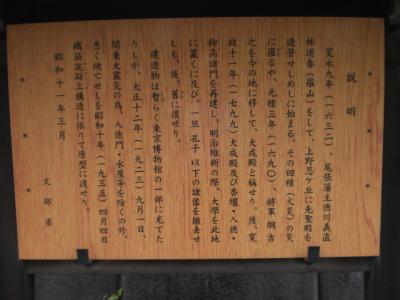 説明
寛永九年(一六三二)、尾張藩主徳川義直
林道春(羅山)をして、上野忍ケ丘に先聖殿を
造営せしめしに始まる。その回禄(火災)の災
に罹るや、元禄三年(一六九〇)、将軍綱吉
之を今の地に移して、大成殿と称せり。後、寛
政十一年(一七九九)大成殿及び杏壇・入徳・
仰高諸門を再建し、明治維新の際、大學を此地
に置くに及び、一旦孔子以下の諸像を撤去せ
しも、後、舊に復せり。
建造物は暫らく東京博物館の一部に充てた
りしが、大正十二年(一九二三)九月一日、
関東大震災の為、入徳門・水屋等を除くの外、
悉く焼亡せしを昭和十年(一九三五)四月四日
鐵筋混凝土構造に依りて原型に復せり。
昭和十一年三月
文部省